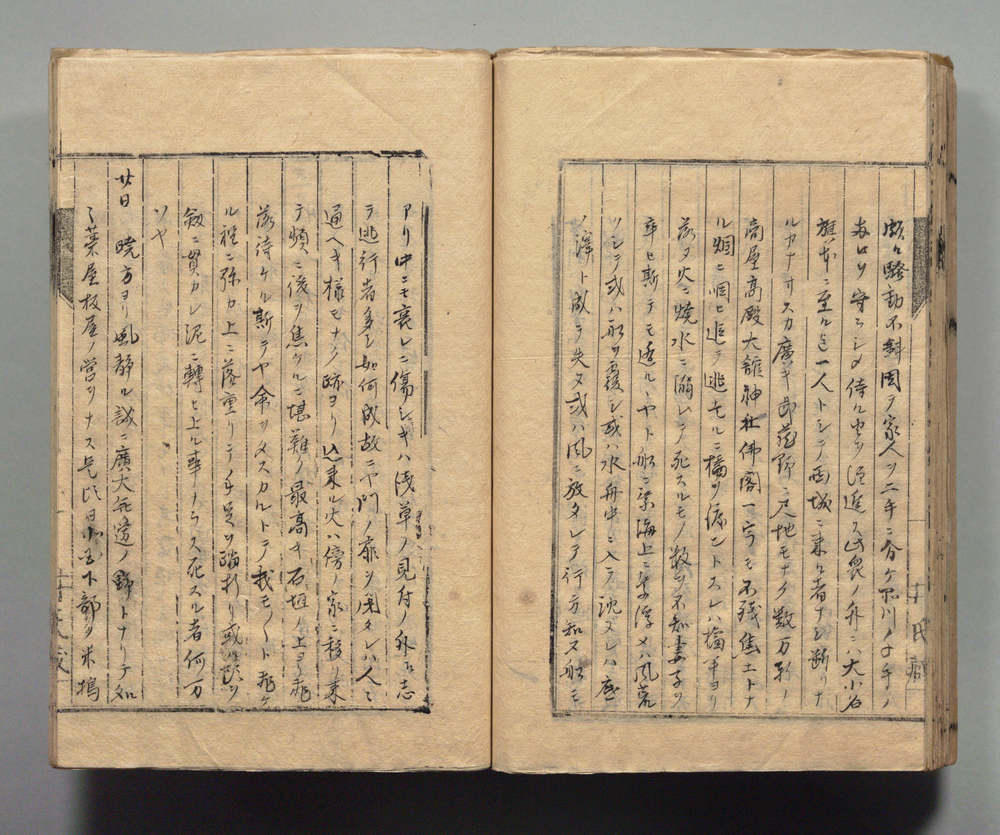 騒動不斜因ヲ家人ヲ二手ニ分ケ品川ノ
ヲ守ラシメ侍ル 外ニハ大小名
旗本ニ至ル迄一人トシテ西城ニ来ル者ナシ断リナ
ルカナサスカ廣キ武蔵野ニ尺地モナク数万軒ノ
商屋高殿大舘神社佛閣一宇モ不残焦土トナ
ル烟ニ咽ヒ迫テ逃モルニ橋ヲ渡ントスレハ橋半ヨリ
落ヌ火ニ焼水ニ溺レテ死スルモノ数ヲ不知妻子ヲ
率ヒ斯テモ遁ルヽヤト船ニ乗海上ニ浮メハ風荒
フシテ或ハ船ヲ覆シ或ハ水舟中ニ入テ沈スレハ底
ノ ト成テ失ヌ或ハ風ニ放タレテ行方知ヌ船モ
アリ中ニモ哀レニ傷シキハ浅草ノ見付ノ外ニ志
テ逃行者多シ如何成故ニヤ門ノ扉ヲ閉タレハ人ニ
通ヘキ様モナク跡ヨリ込来ル火ハ傍ノ家ニ移リ来
テ頻ニ後ヲ焦ケルニ堪難ク最高キ石垣ノ上ヨリ飛
落侍ケル斯テヤ命ヲメスカルトテ我モ〱ト飛ケ
ル程ニ弥カ上ニ落重リテ手足ヲ踏折リ或ハ頭ヲ
釼ニ貫カレ泥ニ轉ヒ上ル事ナラス死スル者何万
ソヤ
廿日 暁方ヨリ風静ル誠ニ廣大無邊ノ野トナリテ如
ク葉屋板屋ノ営ヲナス是 日 下部ヲ米搗